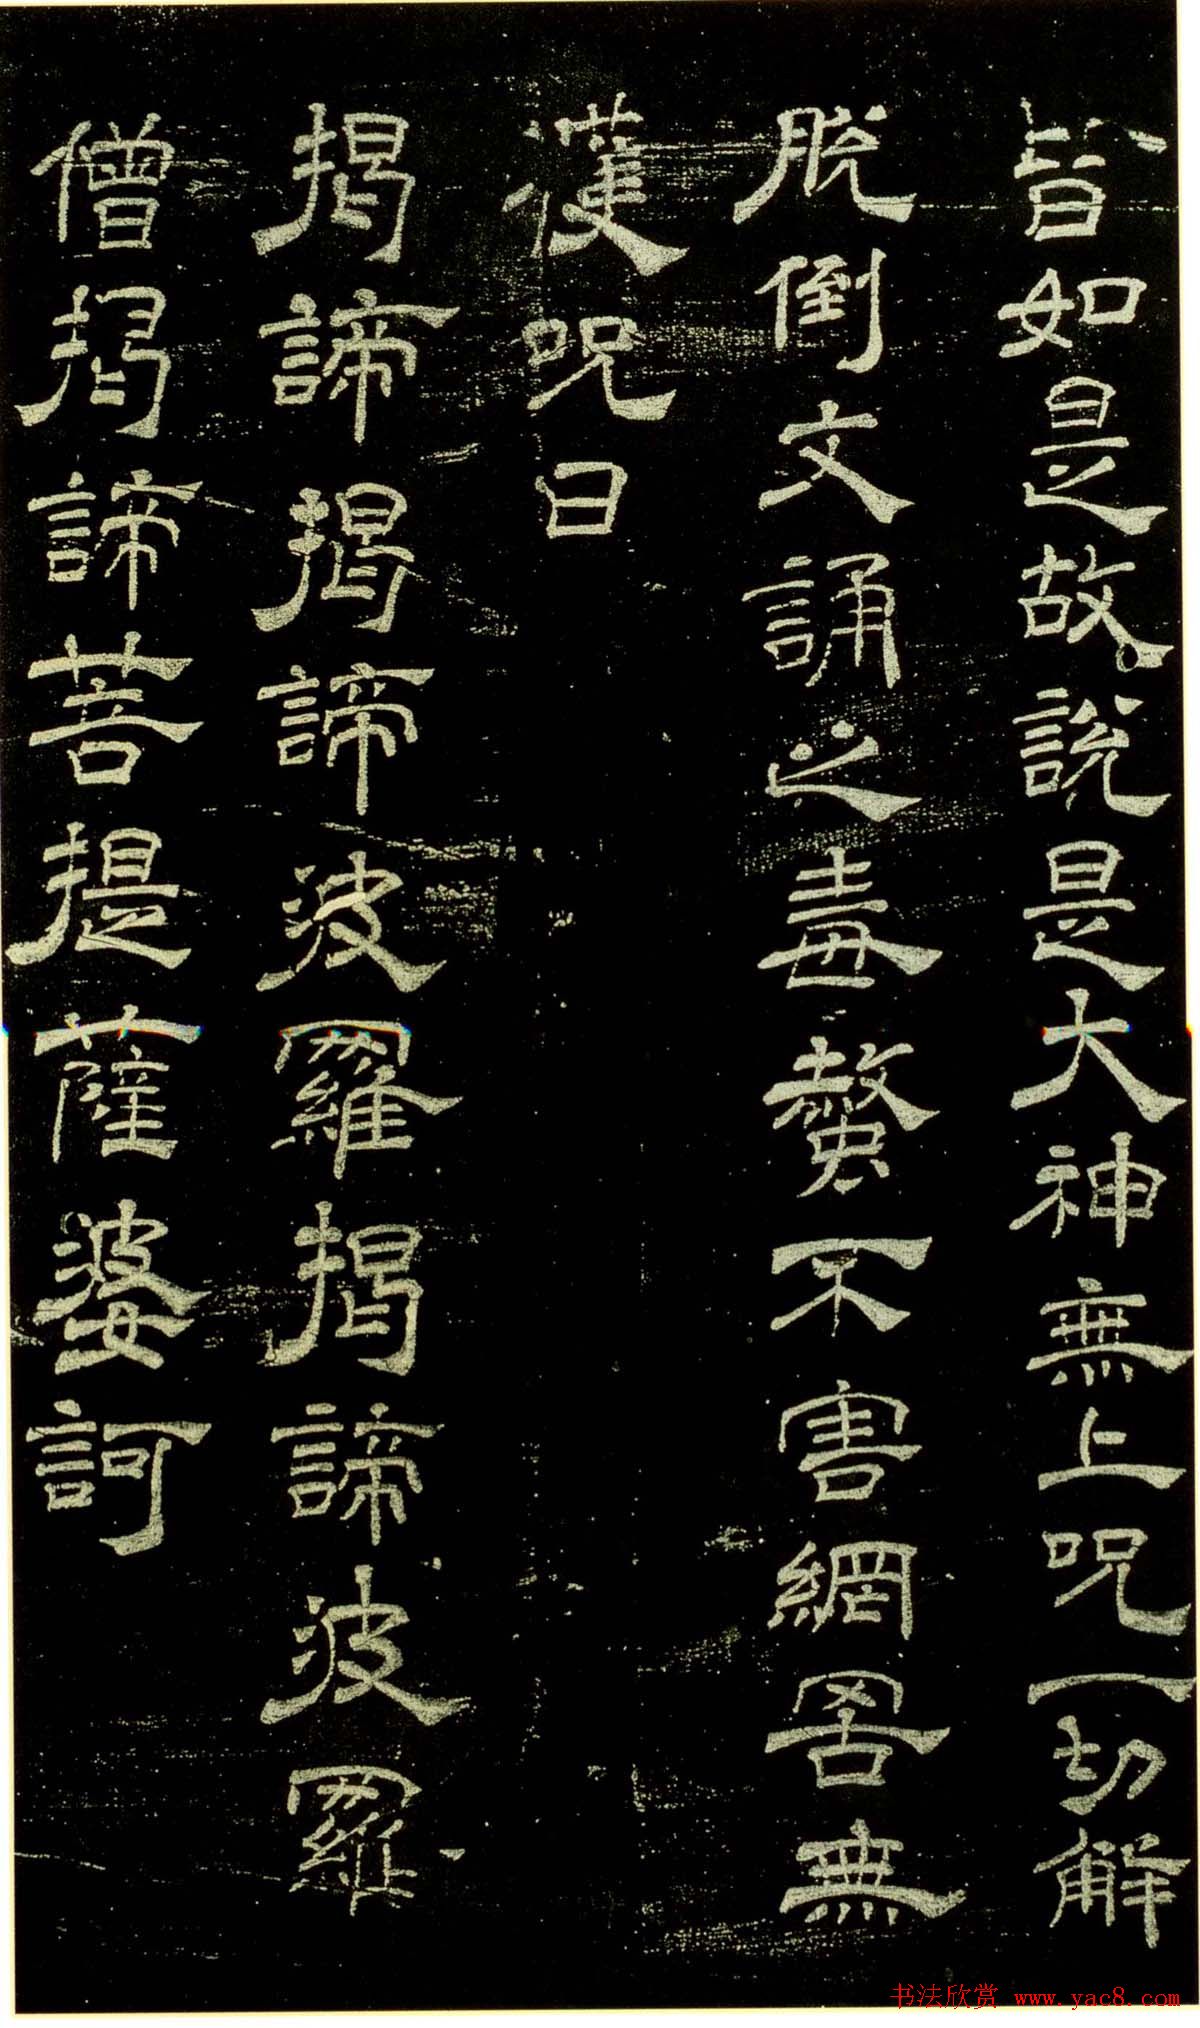 皆如是故說是大神無上呪一切解
脫倒文誦之毒螫不害網罟無
獲呪曰
揭諦揭諦波羅揭諦波羅
僧揭諦菩提薩婆訶
书法欣赏 www.yac8.com